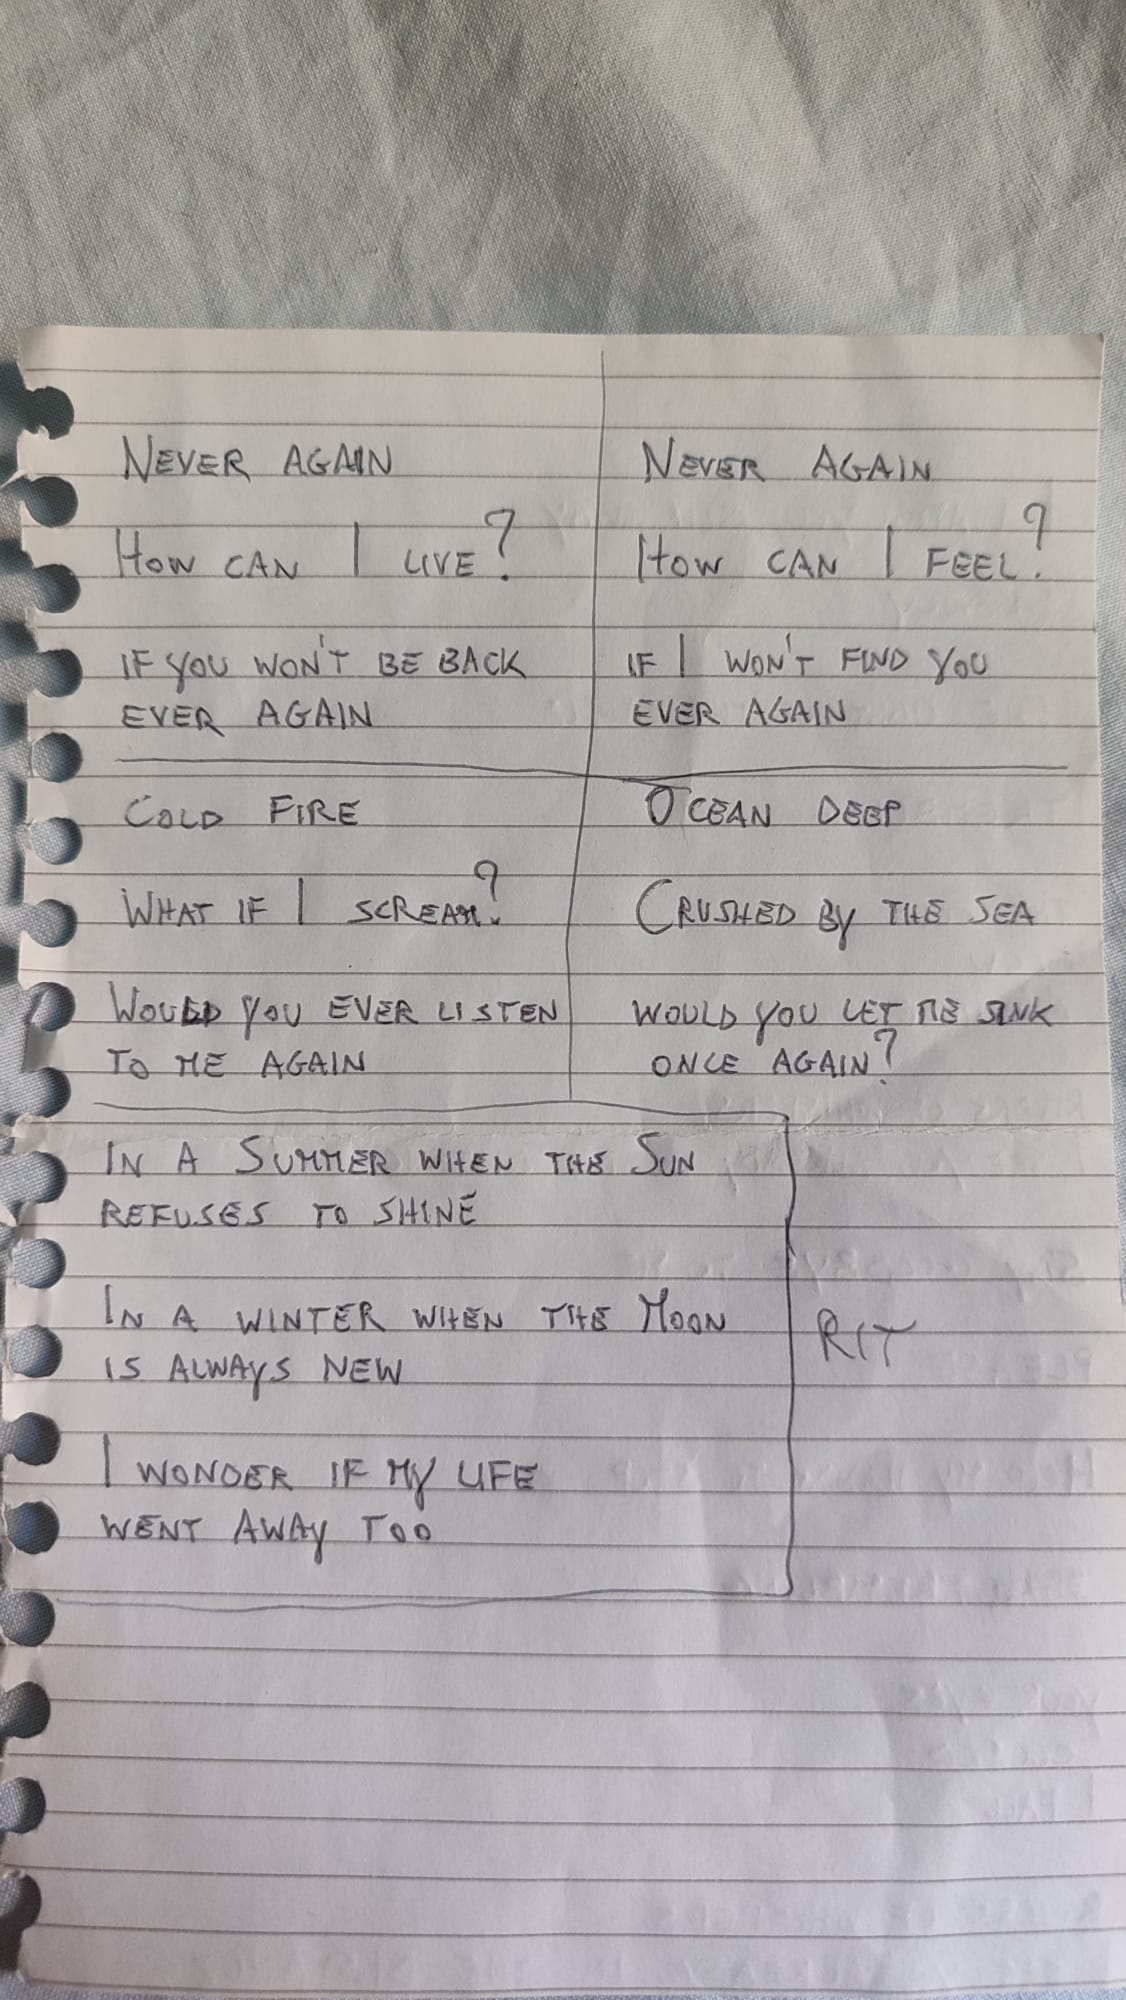 NEVER AGAIN
HOW CAN I LIVE?
IF YOU WON'T BE BACK
EVER AGAIN
NEVER AGAIN
HOW CAN I FEEL?
IF I WON'T FIND YOU
EVER AGAIN
COLD FIRE
WHAT IF I SCREAM?
WOULD YOU EVER LISTEN
TO ME AGAIN
OCEAN DEEP
CRUSHED BY THE SEA
WOULD YOU LET ME SINK
ONCE AGAIN?
IN A SUMMER WHEN THE SUN
REFUSES TO SHINE
IN A WINTER WHEN THE MOON
IS ALWAYS NEW
I WONDER IF MY LIFE
WENT AWAY TOO
RIT